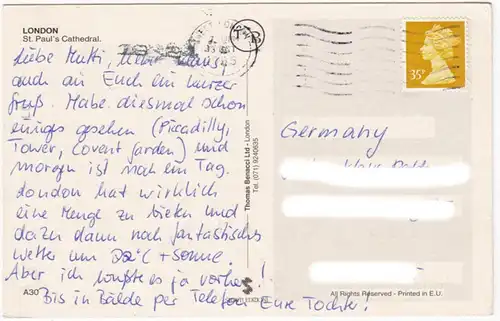 LONDON
St. Paul's Cathedral.
Liebe Mutti, lieber Klaus,
auch an Euch ein kurzer
Gruß. Habe diesmal schon
einiges gesehen (Piccadilly,
Tower, Covent Garden) und
morgen ist noch ein Tag.
London hat wirklich
eine Menge zu bieten und
dazu dann noch fantastisches
Wetter um 22°C + Sonne.
Aber ich wußte es ja vorher!
Bis in Bälde per Telefon Eure Tochter!
A30
Thomas Benacci Ltd - London
Tel. (071) 9240635
35P
Germany
All Rights Reserved - Printed in E.U.